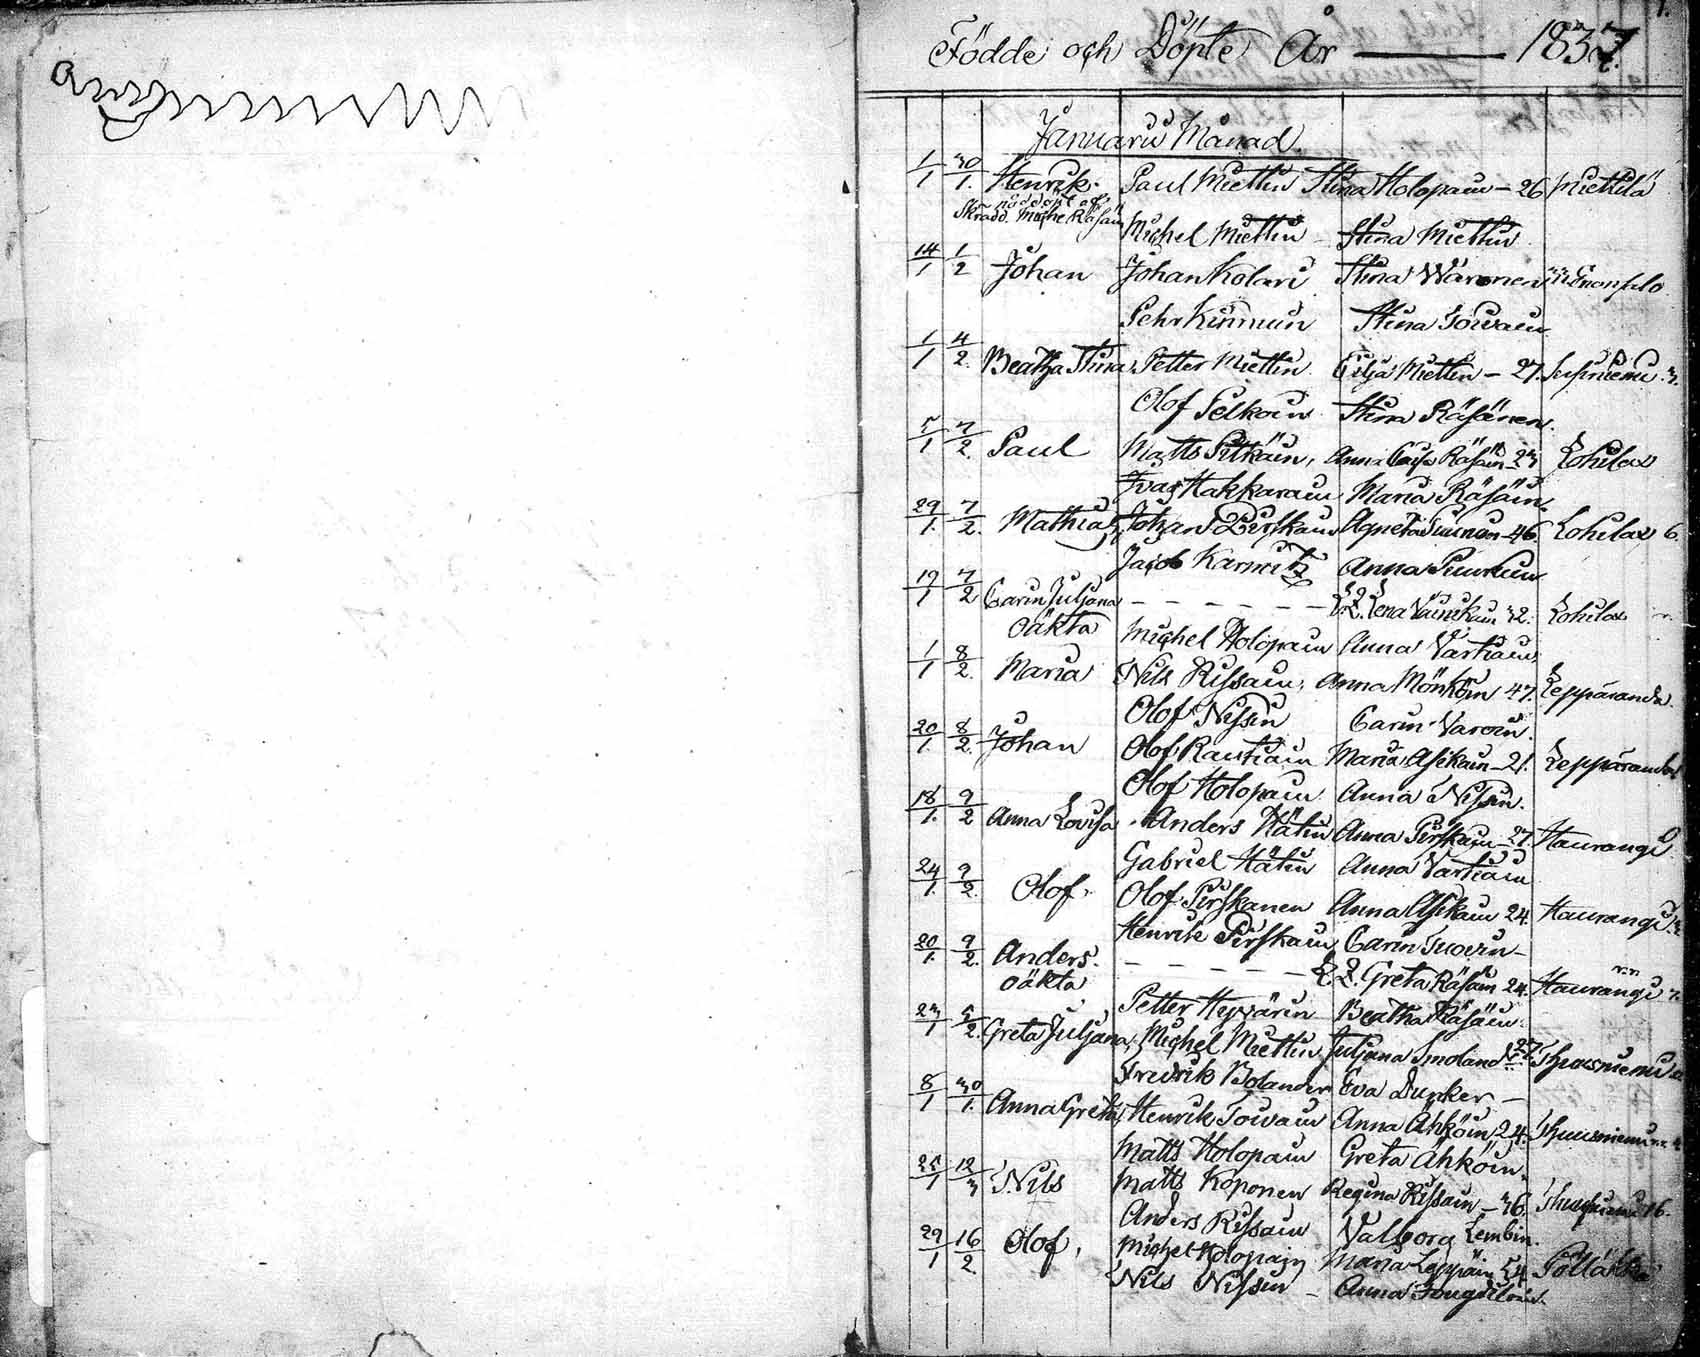 Födde och Döpte År — 1837
1.
Januarii Månad.
1/1 30/1. Henrik. Paul Miettin Stina Holopain – 26 Miettilä
nöddöpt af Skrädd. Miche Räsäin
Michel Miettin – Stina Miettin
14/1 1/2 Johan Johan Kolari Stina Väronen
Pehr Kinnunin Stina Toivain
1/1 4/2. Beatha Stina Petter Miettin Cilja Miettin – 27.
Olof Pelkoin Stina Räsänen.
5/1 7/2. Paul Matts Pitkäin, Anna Caisa Räsäin – 23 Lohilax
Ivar Hakkarain Maria Räsäin.
29/1. 7/2. Mathias Johan Pirskain Agneta – 46. Lohilax 6.
Jacob Anna
19/1 7/2 Carin Juljana – – – – – – Lena Väinikain 32. Lohilax
oäkta Michel Holopain Anna Vartiain
1/1 8/2. Maria Nils Rissain, Anna Mönköin 47. Leppäranda
Olof Nissin Carin Varoin.
20/1. 8/2. Johan Olof Rautiain Maria Asikain – 21. Leppäranda
Olof Holopain Anna Nissin.
18/1. 9/2 Anna Lovisa Anders Hätin Anna Pirskain – 27. Haurangi
Gabriel Hätin Anna Vartiain
24/1. 9/2. Olof. Olof Pirskanen Anna Asikain 24. Haurangi
Henrik Pirskain Carin Tuovin –
20/1. 9/2. Anders. – – – – – – Greta Räsäin 24. Haurangi 7.
oäkta Petter Hyvärin Beatha Räsäin
23/1 5/2. Greta Juljana, Michel Miettin Juljana Smoland 27.
Fredrik Bolander Eva Dunker –
8/1 30/1. Anna Greta, Henrik Toivain Anna Ahköin 24.
Matts Holopain Greta Ahköin.
25/1 12/3 Nils Matts Koponen Regina Rissain – 36. 16.
Anders Rissain Valborg Lembin.
29/1 16/2. Olof, Michel Holopain Maria Leppäin 34
Nils Nissin – Anna